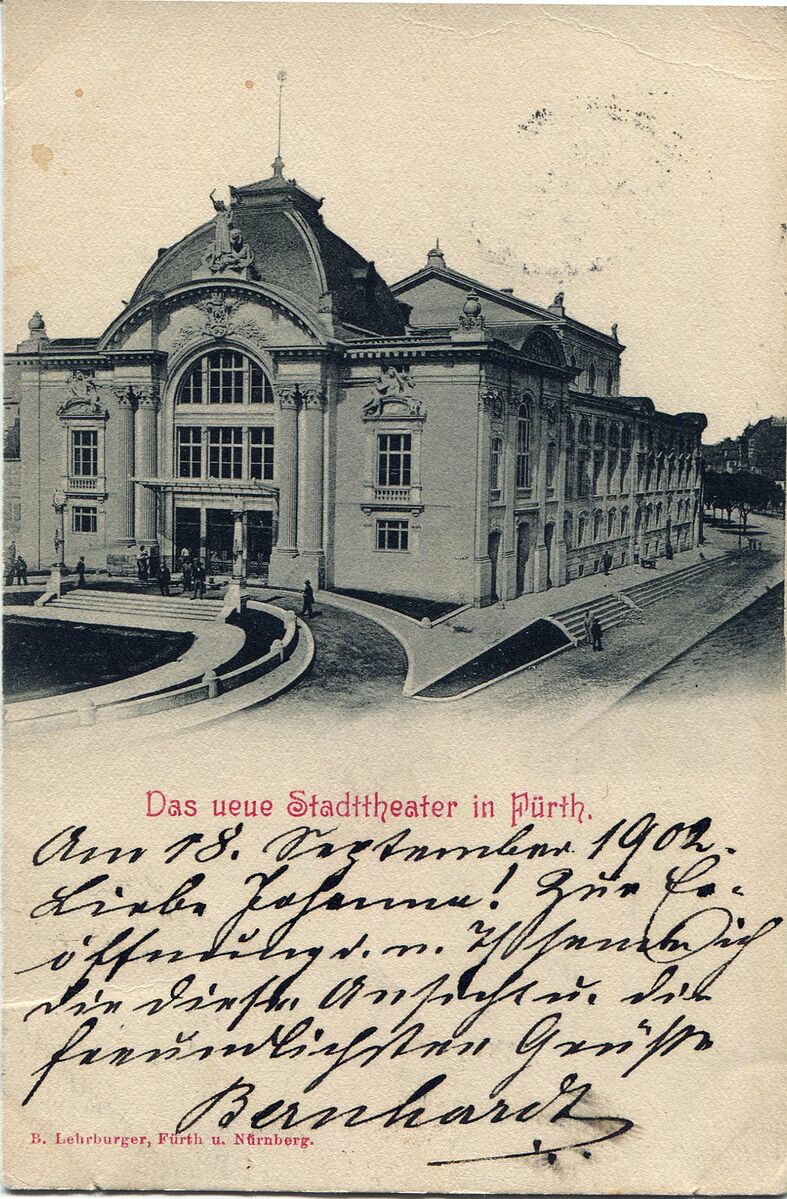 Das neue Stadttheater in Fürth.
Am 18. September 1902.
Liebe Johanna! Zur Er-
öffnung d. n. Th senen ich
die diese Ansicht u. die
freundlichsten Grüße
Bernhardt
B. Lehrburger, Fürth u. Nürnberg.